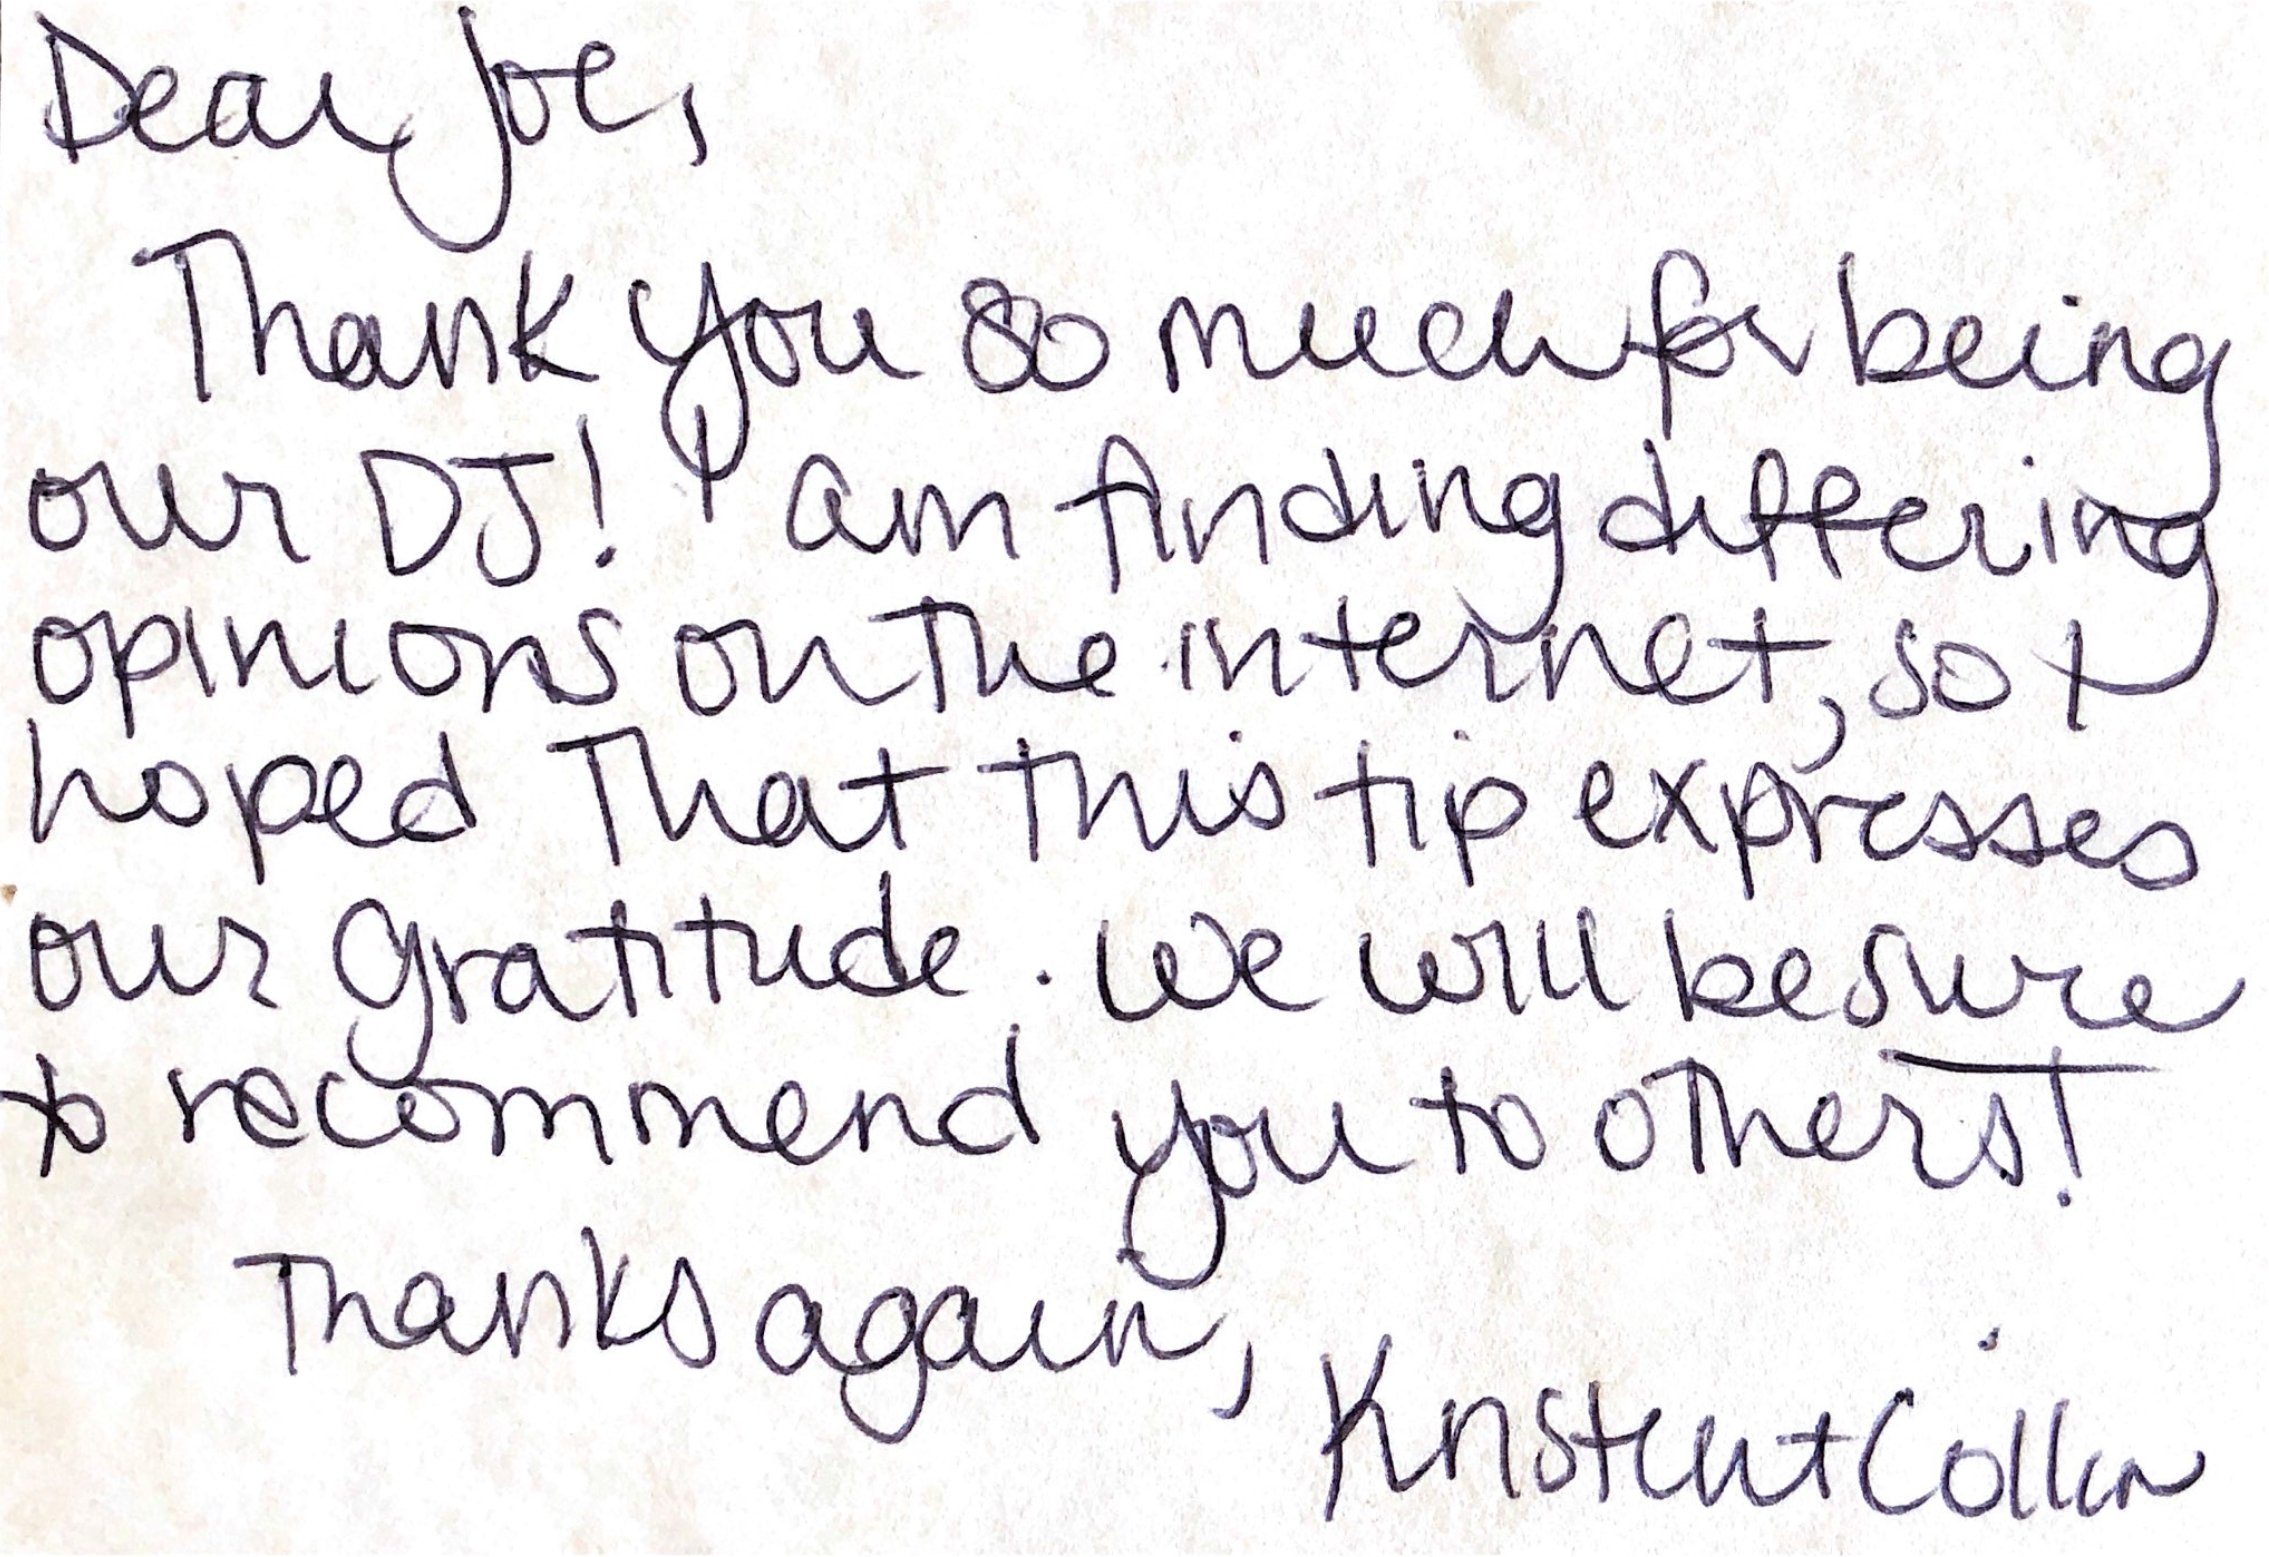 Dear Joe,
Thank you so much for being
our DJ! I am finding differing
opinions on the internet, so I
hoped that this tip expresses
our gratitude. We will be sure
to recommend you to others!
Thanks again,
Kristen + Collin